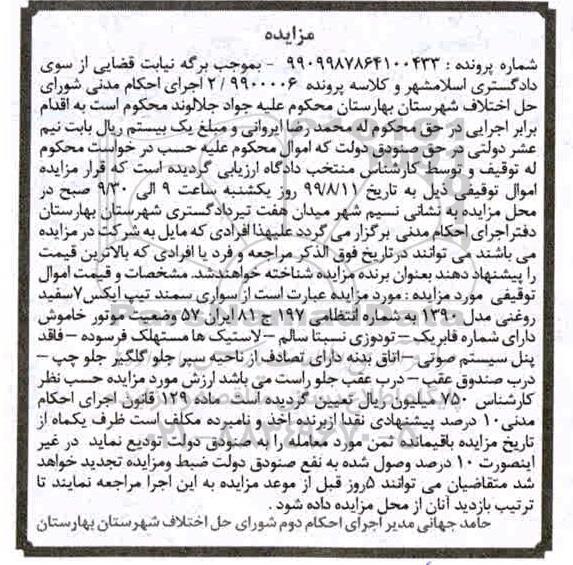 مزایده
شماره پرونده : ۹۹۰۹۹۸۷۸۶۴۱۰۰۴۳۳ - بموجب برگه نیابت قضایی از سوی
دادگستری اسلامشهر و کلاسه پرونده ۹۹۰۰۰۰۶ / ۲ اجرای احکام مدنی شورای
حل اختلاف شهرستان بهارستان محکوم علیه جواد جلالوند محکوم است به اقدام
برابر اجرایی در حق محکوم له محمد رضا ایروانی و مبلغ یک بیستم ریال بابت نیم
عشر دولتی در حق صندوق دولت که اموال محکوم علیه حسب در خواست محکوم
له توقیف و توسط کارشناس منتخب دادگاه ارزیابی گردیده است که قرار مزایده
اموال توقیفی ذیل به تاریخ ۹۹/۸/۱۱ روز یکشنبه ساعت ۹ الی ۹/۳۰ صبح در
محل مزایده به نشانی نسیم شهر میدان هفت تیردادگستری شهرستان بهارستان
دفتراجرای احکام مدنی برگزار می گردد علیهذا افرادی که مایل به شرکت در مزایده
می باشند می توانند درتاریخ فوق الذکر مراجعه و فرد یا افرادی که بالاترین قیمت
را پیشنهاد دهند بعنوان برنده مزایده شناخته خواهندشد. مشخصات و قیمت اموال
توقیفی مورد مزایده : مورد مزایده عبارت است از سواری سمند تیپ ایکس۷سفید
روغنی مدل ۱۳۹۰ به شماره انتظامی ۱۹۷ج ۸۱ ایران ۵۷ وضعیت موتور خاموش
دارای شماره فابریک – تودوزی نسبتا سالم – لاستیک ها مستهلک فرسوده – فاقد
پنل سیستم صوتی – اتاق بدنه دارای تصادف از ناحیه سپر جلو گلگیر جلو چپ –
درب صندوق عقب – درب عقب جلو راست می باشد ارزش مورد مزایده حسب نظر
کارشناس ۷۵۰ میلیون ریال تعیین گردیده است ماده ۱۲۹ قانون اجرای احکام
مدنی۱۰ درصد پیشنهادی نقدا ازبرنده اخذ و نامبرده مکلف است ظرف یکماه از
تاریخ مزایده باقیمانده ثمن مورد معامله را به صندوق دولت تودیع نماید در غیر
اینصورت ۱۰ درصد وصول شده به نفع صندوق دولت ضبط ومزایده تجدید خواهد
شد متقاضیان می توانند ۵روز قبل از موعد مزایده به این اجرا مراجعه نمایند تا
ترتیب بازدید آنان از محل مزایده داده شود .
حامد جهانی مدیر اجرای احکام دوم شورای حل اختلاف شهرستان بهارستان